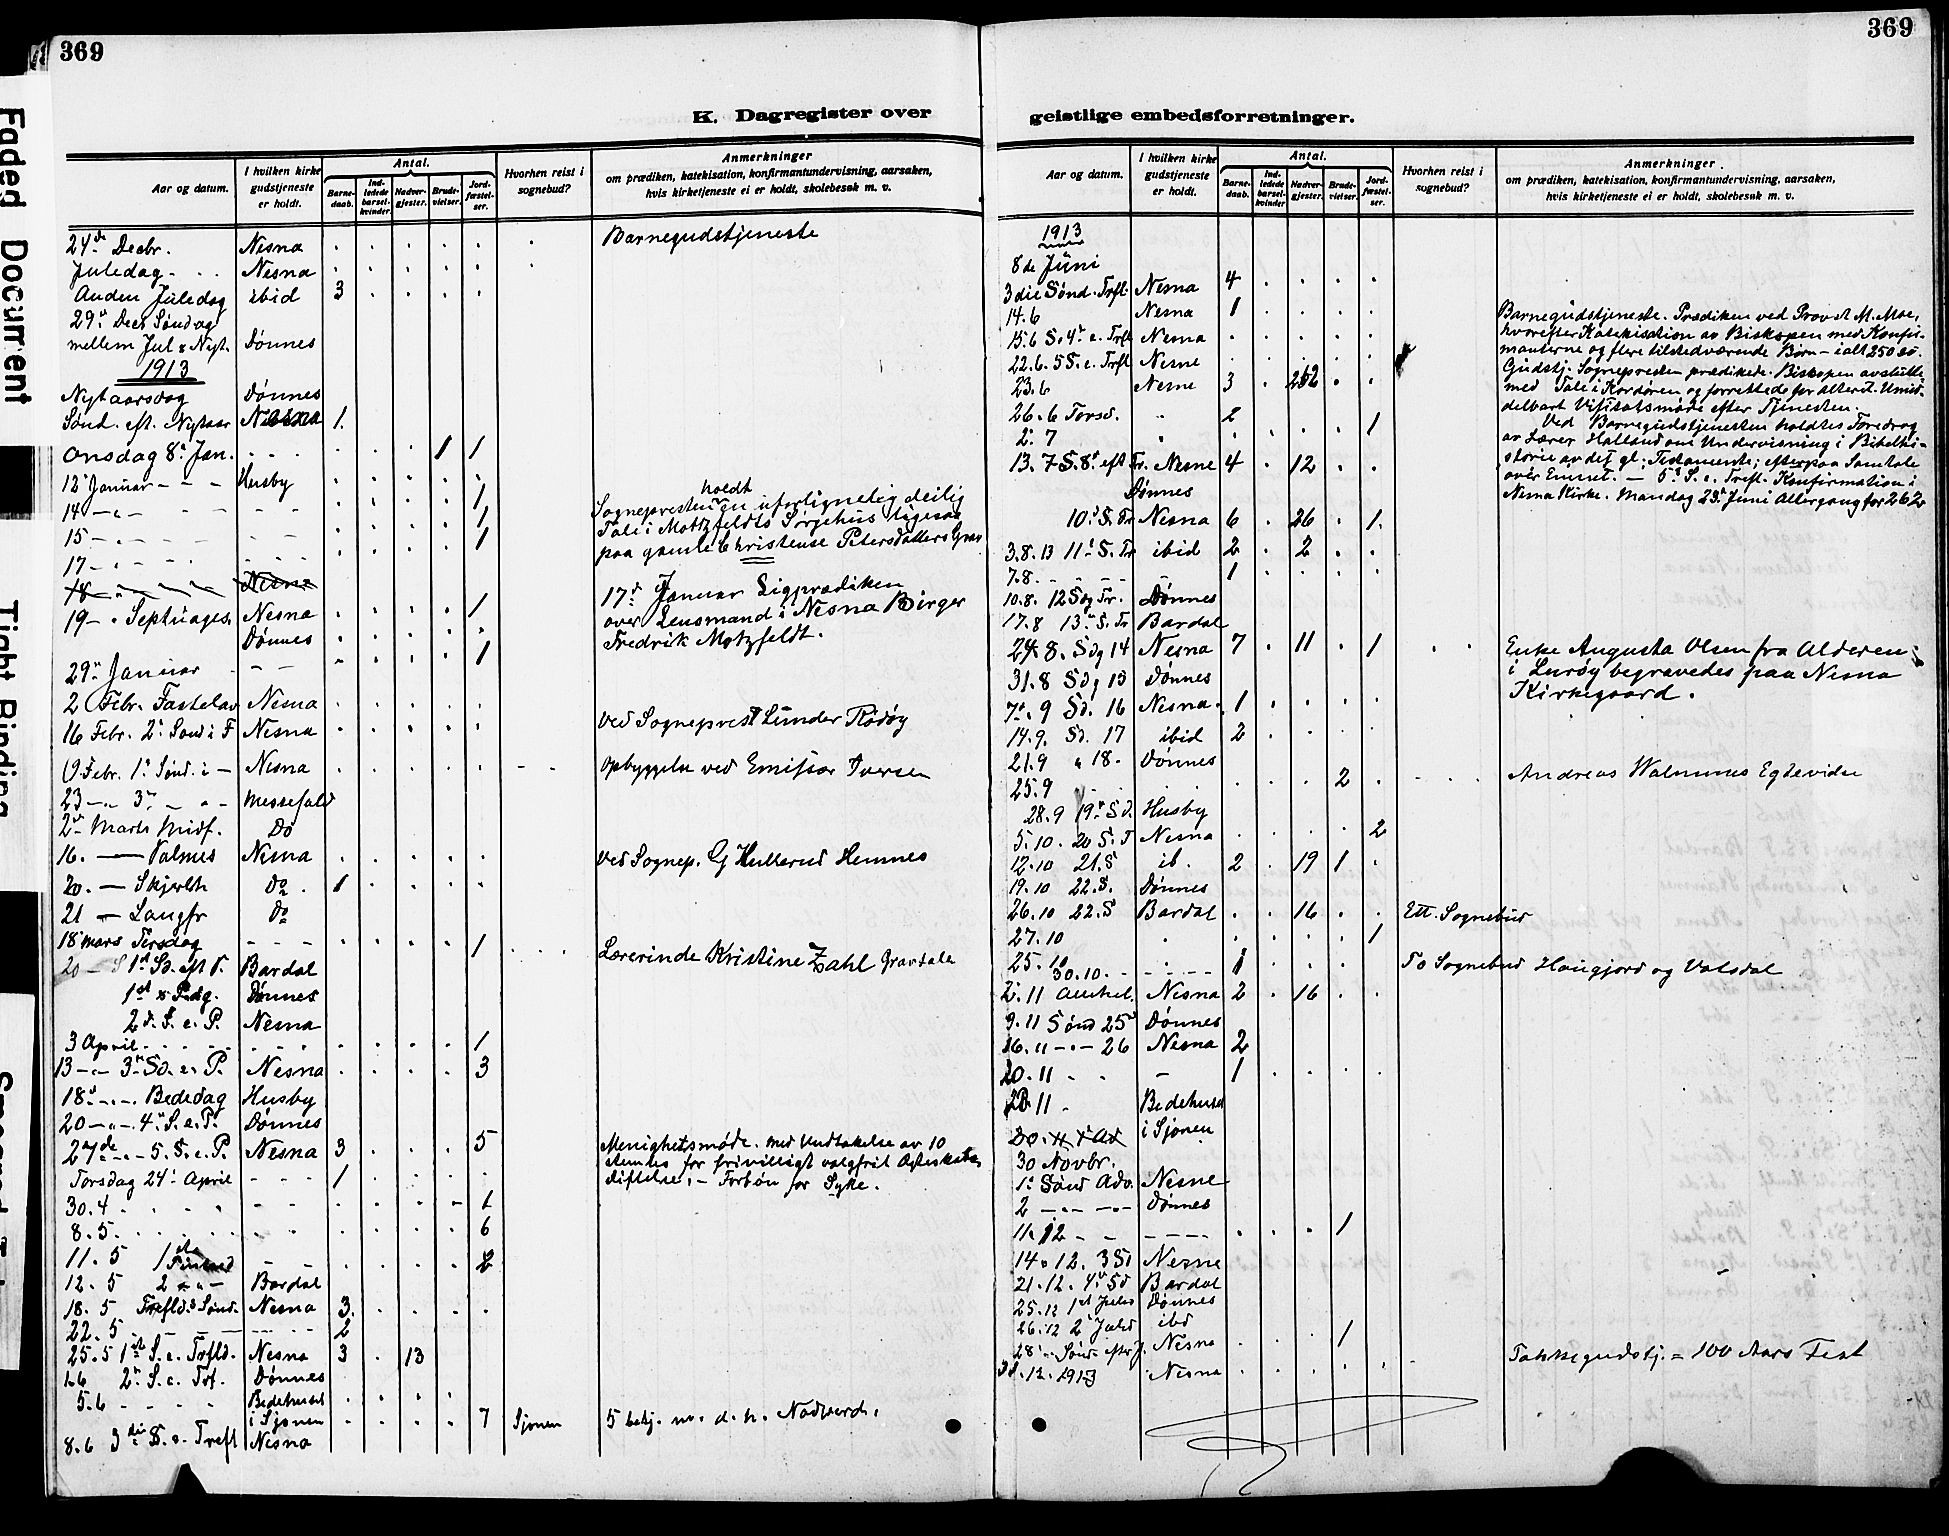 369
K. Dagregister over
Aar og datum.
I hvilken kirke gudstjeneste er holdt.
Antal.
Barne-daab.
Ind-ledede barsel-kvinder.
Nadver-gjester.
Brude-vielser.
Jord-fæstel-ser.
Hvorhen reist i sognebud?
Anmerkninger
om prædiken, katekisation, konfirmantundervisning, aarsaken,
hvis kirketjeneste ei er holdt, skolebesøk m. v.
24de Decbr. Nesna Barnegudstjeneste
Juledag Nesna
Anden Juledag ibid 3
29. Decb Søndag
mellem Jul & Nyt. Dønnes
1913
Nytaarsdag Dønnes
Sønd. eft. Nytaar Nesna 1.
Onsdag 8. Jan. 1 1
12 Januar Husby
14 - 1 Sognepresten holdt en uforlignelig deilig
15 - 1 Tale i Motzfeldts Sørgehus ligesaa
17 - 1 paa gamle Christense Petersdatters Grav
18 Nesna
19 - Septuages. Nesna 1
17de Januar Ligprædiken
over Lensmand i Nesna Birger
Fredrik Motzfeldt.
Dønnes
29 Januar 1
2 Febr. Fastelav Nesna
16 Febr. 2. Sønd i F Nesna Ved Sogneprest Lunder Rödöy
9 Febr. 1. Sønd. i - Nesna Opbyggelse ved Emissær Iversen
23 - 3 - Messefald
2 Marts Midf. Do
16. - Palmes Nesna Ved Sognep. G Hullerud Hemnes
20. - Skjærth Do 1
21 - Langfr Do
18 mars Tirsdag 1 Lærerinde Kristine Zahl Gravtale
20 - 1st Sd. eft P. Bardal
Dønnes
2d. S. e. P. Nesna
3 April 1
13 - 3. Sd. e. P. Nesna 3
18 - Bededag Husby
20 - 4. S. e. P. Dønnes
27de - 5. S. e. P. Nesna 3 5 Menighetsmøde. Med Undtakelse av 10
stemtes for frivilligt valgfrit
Forbøn for Syke.
Torsdag 24. April 1
30. 4 1
8. 5. 6
11. 5
12. 5 2 - Bardal
18. 5 Trefld.s Sønd. Nesna 3.
22. 5 2
25. 5 1st S. e. Trfld. Nesna 3 13
1.6 2. S. e. Trf. Dønnes
5. 6 Bedehuset
i Sjonen 7 Sjonen 5 betj. m. d. h. Nadverd.
8. 6 3die S. e. Trefl Nesna
369
geistlige embedsforretninger.
Aar og datum.
I hvilken kirke gudstjeneste er holdt.
Antal.
Barne-daab.
Ind-ledede barsel-kvinder
Nadver-gjester.
Brude-vielser.
Jord-fæstel-ser.
Hvorhen reist i sognebud?
Anmerkninger.
om prædiken, katekisation, konfirmantundervisning, aarsaken,
hvis kirketjeneste ei er holdt, skolebesøk m. v.
1913
8de Juni
3die Sønd. Trfl. Nesna 4
14. 6 Nesna 1
15. 6 S. 4. e. Trfl Nesna
22. 6. 5 S. e. Trfl Nesne
23. 6 Nesne 3 262
26. 6 Torsd. 2
2. 7 1
Barnegudstjeneste. Prædiken ved Provst M. Moe,
hvorefter Katekisation av Biskopen med Konfir-
manterne og flere tilstedværende Børn - ialt 250
Gudstj. Sognepresten prædikede. Biskopen avsluttet
med Tale i Kordøren og forrettede for alteret. Umid-
delbart Visitatsmøde efter Tjenesten.
Ved Barnegudstjenesten holdtes Foredrag
av Lærer Halland om Undervisning i Bibelhi-
storie av det gl. Testamente; efterpaa Samtale
over Emnet. - 5. S. e. Trefl. Konfirmation i
Nesna Kirke. Mandag 23. Juni Altergang for 262
13. 7 S. 8. eft Tr. Nesne 4 12
Dønnes
10. S. Tr Nesna 6 26 1.
3. 8. 13 11. S. Tr ibid 2 2
7. 8. 1
10. 8. 12 Sdg Tr. Dønnes
17. 8 13. S. Tr Bardal
24. 8. Sdg 14 Nesna 7 11 1 Enke Augusta Olsen fra Alderen
i Lurøy begravedes paa Nesna
Kirkegaard.
31. 8 Sdg 15 Dønnes
7. 9 Sd. 16 Nesna 1
14. 9. Sd. 17 ibid 2
21. 9 " 18. Dønnes
25. 9 2 Andreas
28. 9 19. Sd. Husby
5. 10. 20 S. T Nesna 2
12. 10 21. S ib. 2 19 1
19. 10 22. S. Dønnes
26. 10 22. S Bardal 16 Ett. Sognebud
27. 10 1
25. 10
30. 10. 1 To Sognebud Haugjord og Valsdal
2. 11 Nesna 2 16
9. 11 Sønd 25 Dønnes
16. 11 - 26 Nesna 2
20. 11 1
11 Bedehuset
i Sjonen
30 Novbr.
1. Sønd Adv. Nesne
2 - Dønnes
11. 12 1
14. 12. 3 Sd Nesne
21. 12. 4. Sd Bardal
25. 12 1st Juled Dønnes
26. 12 2. Juled ibd
28 - Sønd. efter J. Nesna 1
31. 12. 1913 Nesna Takkegudstj. = 100 Aars Fest
Faded Document
Tight Binding